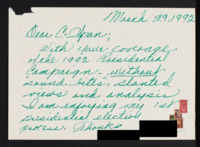 March 29, 1992
Dear C-Span;
With your coverage
of the 1992 Presidential
Campaign - without
sound bits - slanted
views and analysis
I am enjoying my 1st
presidential election
process. Thanks